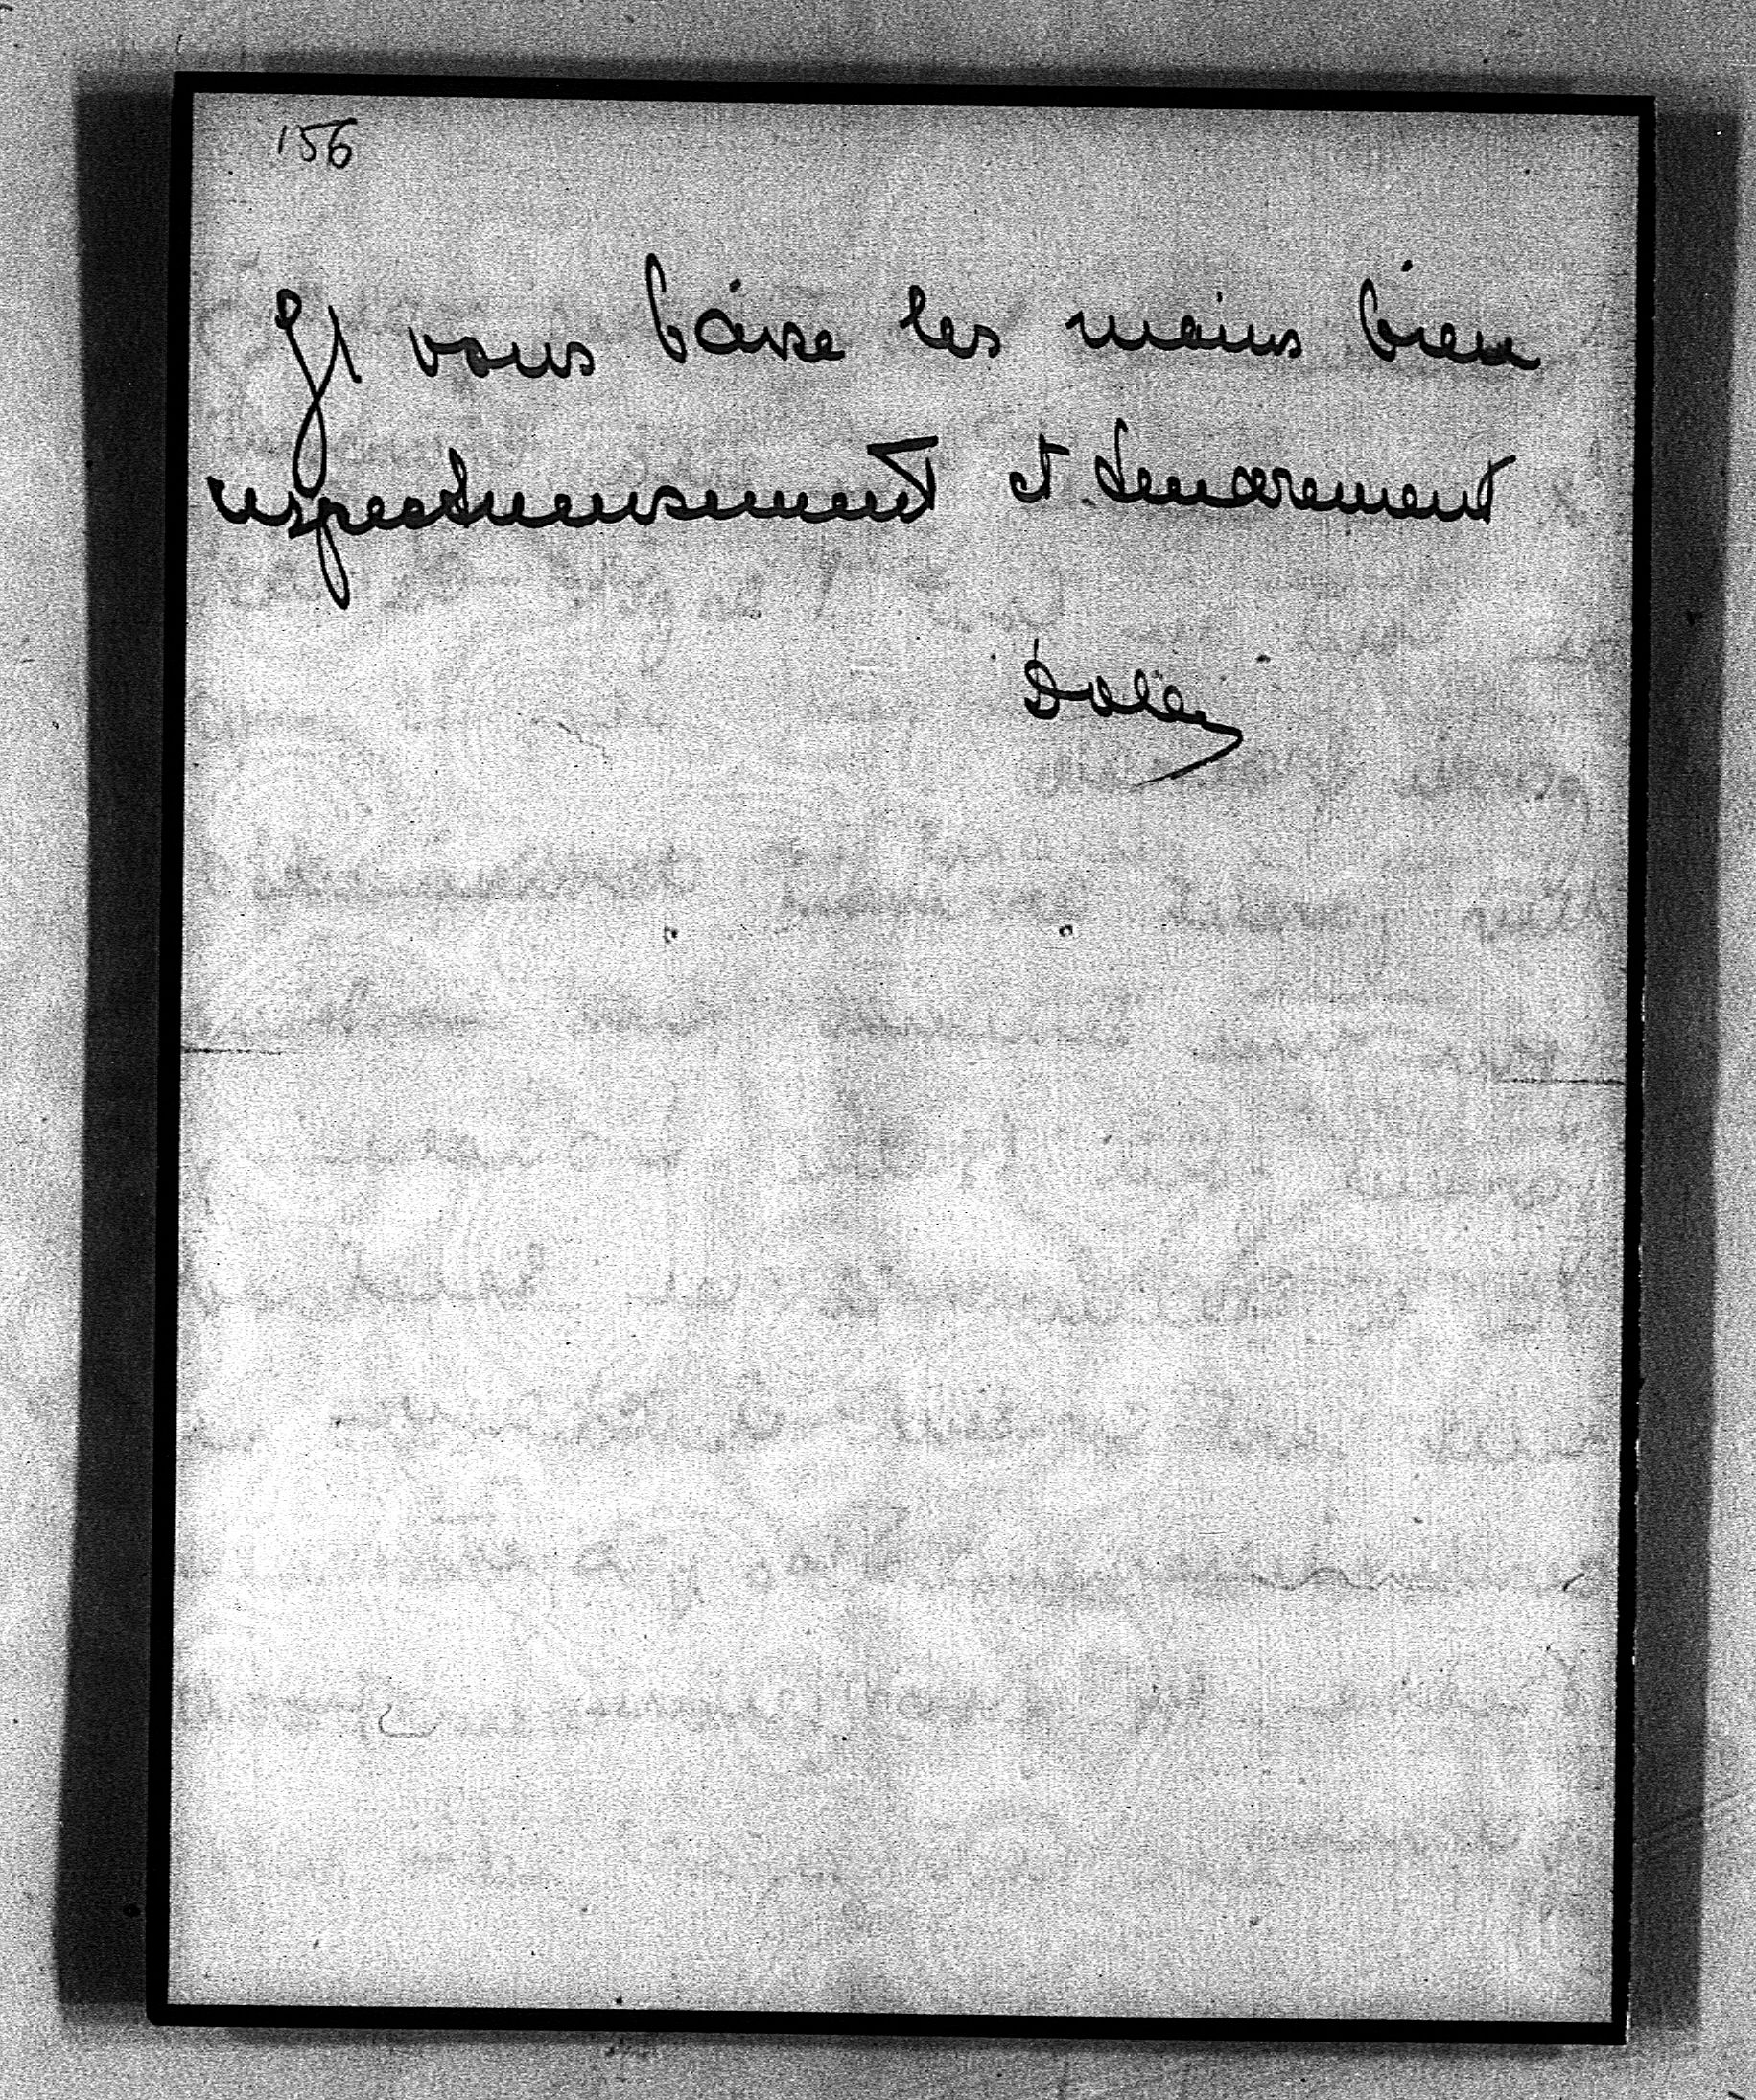 156
Et vous baise les mains bien
respectueusement et tendrement